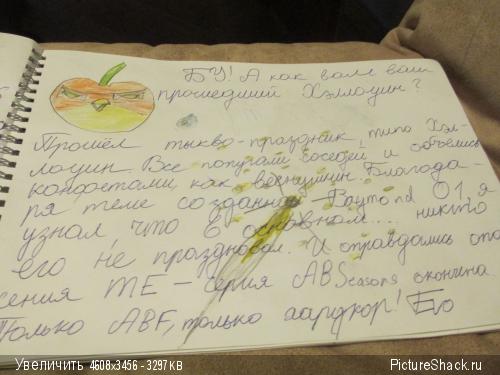 БУ! А как вам ваш
прошедший Хэллоуин?
Прошёл тыкво-праздник типо Хэл-
лоуин. Все попугали соседей и объелись
конфетами, как веснушки. Благода-
ря теме созданно - Baymond 01, я
узнал что в основном... никто
его не праздновал. И оправдались опа
сения ME - серия ABSeasons окончина
Только ABF, только хардкор! Бю
Увеличить 4608x3456 - 3297KB
PictureShack.ru